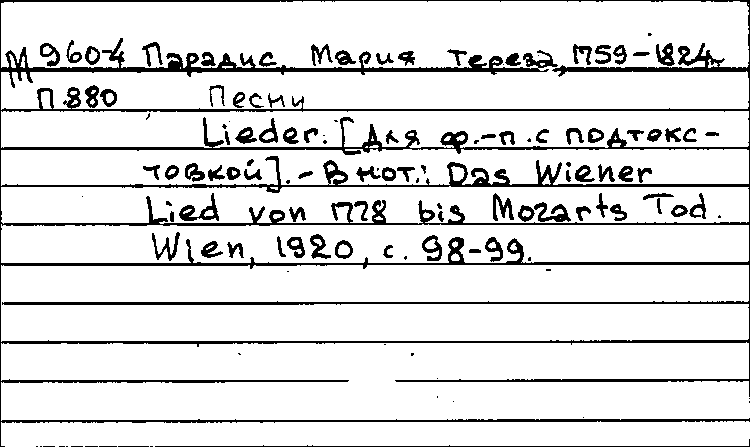 М 960-4 Парадис, Мария Тереза, 1759-1824
П 880 Песни
Lieder. [Для ф.-п. с подтекс-
товкой]. - В нот.: Das Wiener
Lied von 1778 bis Mozarts Tod.
Wien, 1920, с. 98-99.